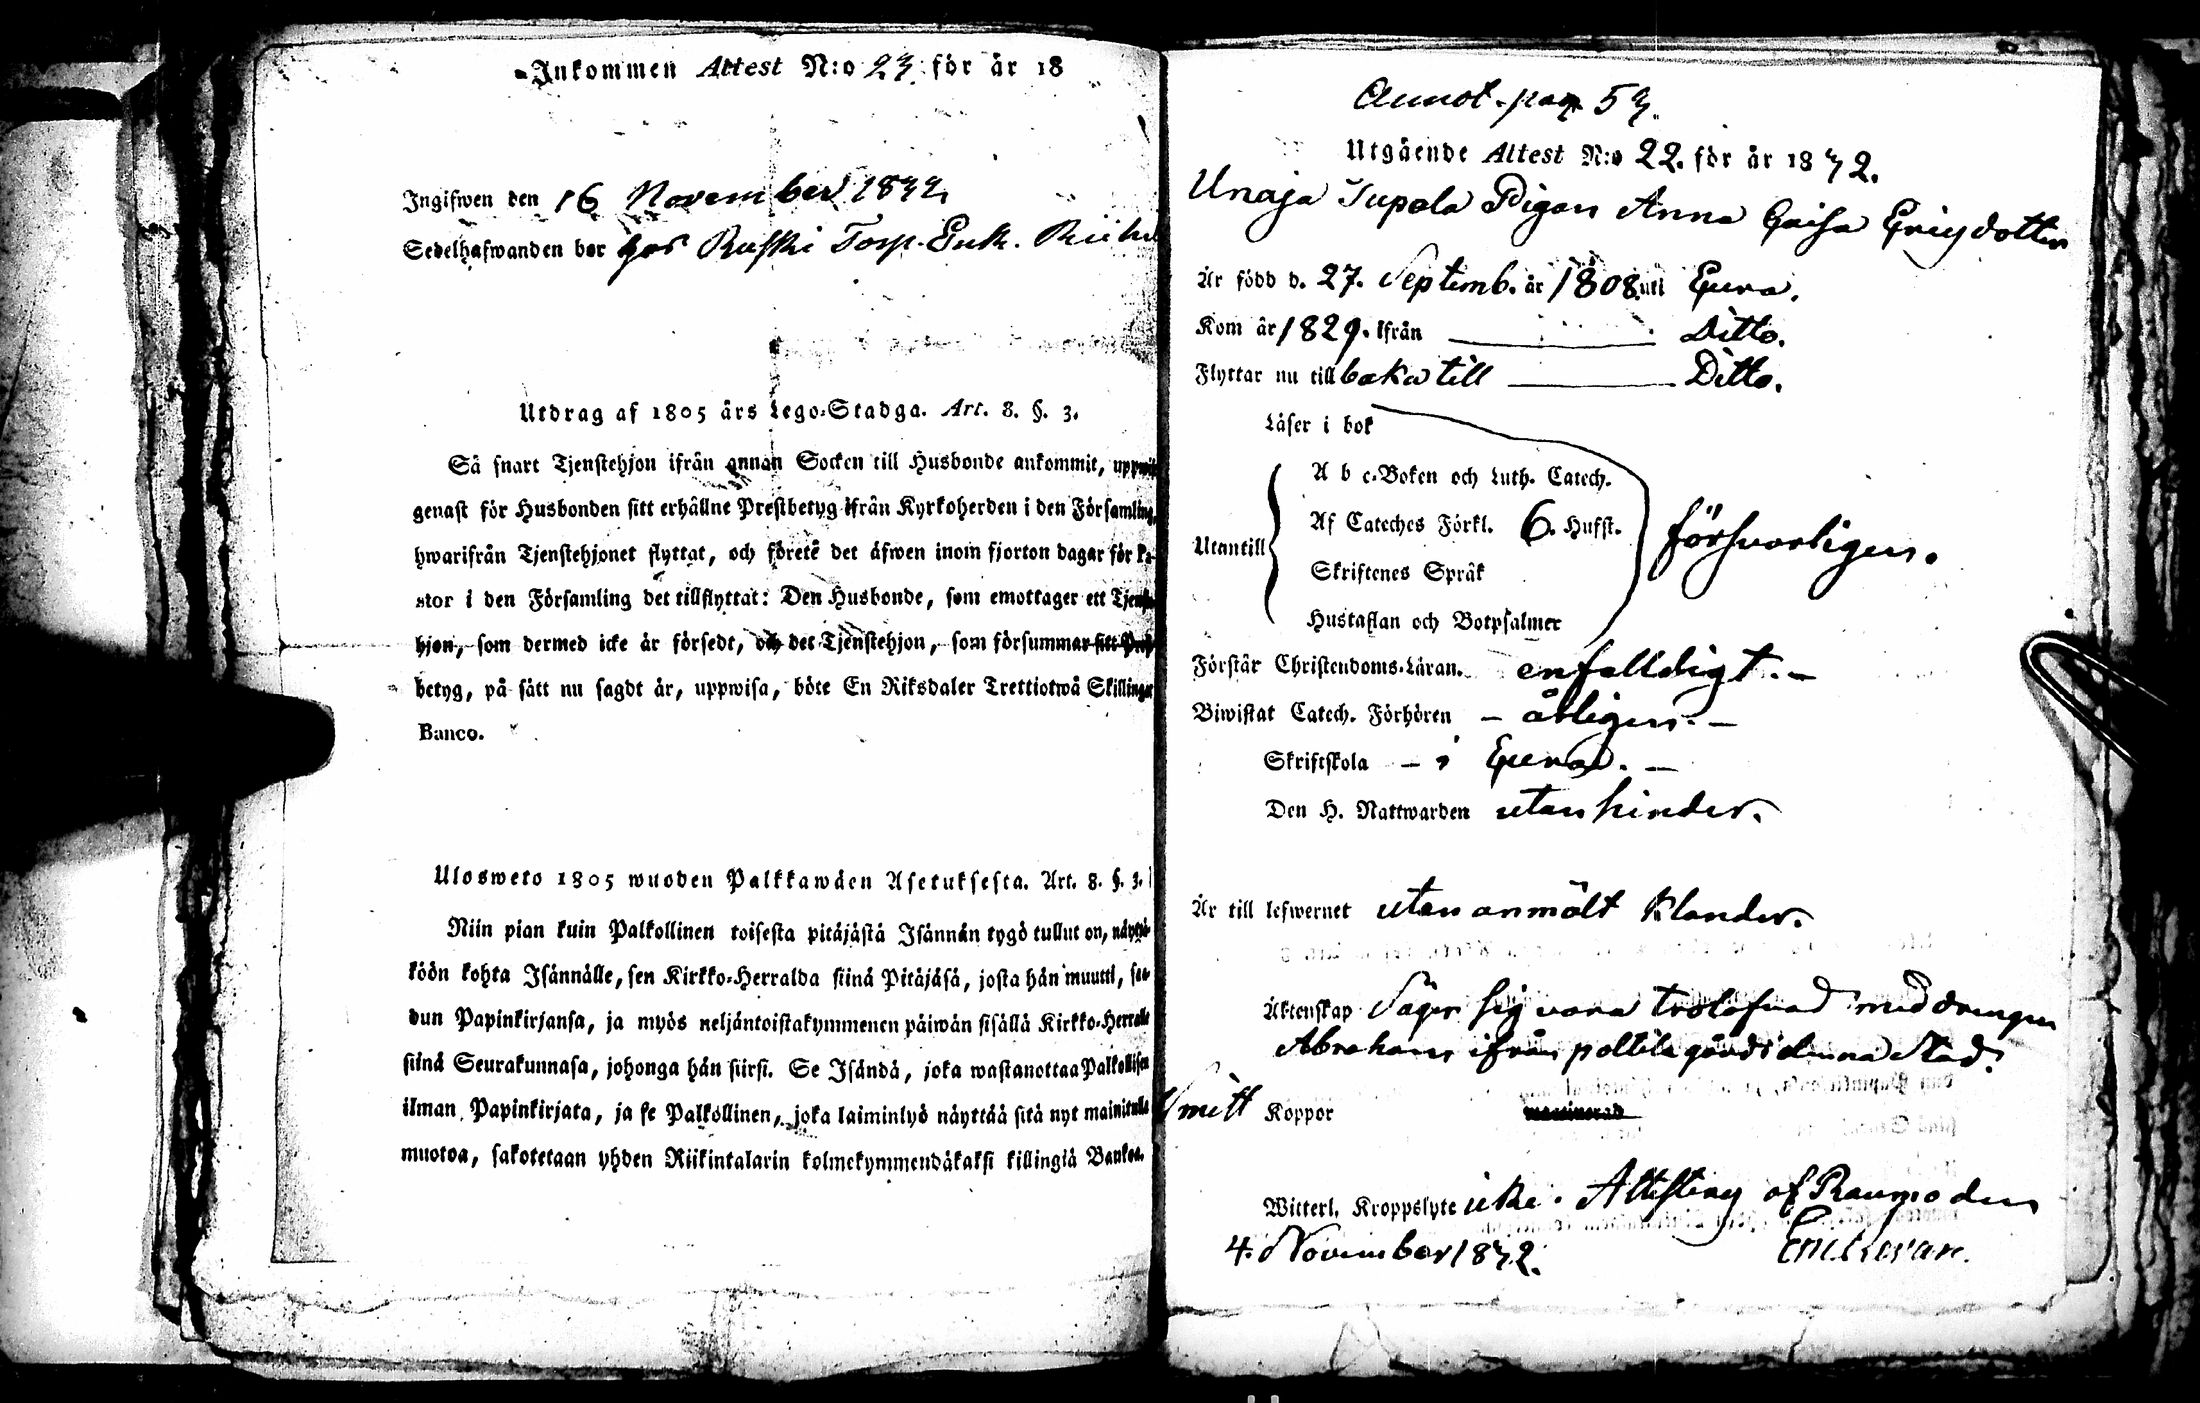 Inkommen Attest N:o 23 för år 18
Ingifwen den 16 November 1832
Sedelhafwanden bor hos Ruski Torp. Enk. Riihi
Utdrag af 1805 års Lego-Stadga. Art. 8. §. 3.
Så snart Tjenstehjon ifrån annan Socken till Husbonde ankommit, uppwise
genast för Husbonden sitt erhållne Prestbetyg ifrån Kyrkoherden i den Församling,
hwarifrån Tjenstehjonet flyttat, och förete det äfwen inom fjorton dagar för Pa-
stor i den Församling det tillflyttat: Den Husbonde, som emottager ett Tjenste-
hjon, som dermed icke är försedt, och det Tjenstehjon, som försummar sitt Prest-
betyg, på sätt nu sagdt är, uppwisa, böte En Riksdaler Trettiotwå Skillingar
Banco.
Ulosweto 1805 wuoden Palkkawäen Asetuksesta. Art. 8. §. 3.
Niin pian kuin Palkollinen toisesta pitäjästä Isännän tygö tullut on, näyttä-
köön kohta Isännälle, sen Kirkko-Herralda siinä Pitäjäsä, josta hän muutti, saa-
dun Papinkirjansa, ja myös neljäntoistakymmenen päiwän sisällä Kirkko-Herralle
siinä Seurakunnasa, johonga hän siirsi. Se Isändä, joka wastanottaa Palkollisen
ilman Papinkirjata, ja se Palkollinen, joka laiminlyö näyttää sitä nyt mainitulla
muotoa, sakotetaan yhden Riikintalarin kolmekymmendäkaksi killingiä Bankoa.
Annot. pag 53.
Utgående Attest N:o 22. för år 1832.
Unaja Supala Pigan Anna Caisa Ericsdotter
Är född d. 27. Septemb. år 1808. uti Eura.
Kom år 1829. ifrån Ditto.
Flyttar nu till baka till Ditto.
Läser i bok
A b c-Boken och Luth. Catech.
Af Cateches Förkl. 6. Hufst.
Utantill försvarligen.
Skriftenes Språk
Hustaflan och Botpsalmer
Förstår Christendoms-Läran. enfaldigt. -
Biwistat Catech. Förhören - årligen. -
Skriftskola - i Eura. -
Den H. Nattwarden utan hinder.
Är till lefwernet utan anmält klander.
Äktenskap Säger sig vara trolofvad med drengen
Abraham ifrån pottila gård i denna Stad.
Smitt Koppor
Witterl. Kroppslyte icke. Attesteras af Raumo den
4. November 1832.